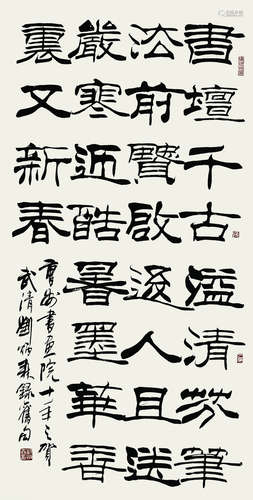 書壇千古溢清芬筆
法前賢啟後人且送
嚴寒迎酷暑墨華香
裏又新春
曹州書画院十年之賀
武清劉炳森錄舊句